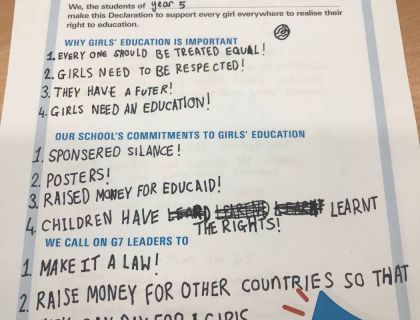 We, the students of year 5
make this Declaration to support every girl everywhere to realise their
right to education.
WHY GIRLS' EDUCATION IS IMPORTANT
1. EVERY ONE SHOULD BE TREATED EQUAL!
2. GIRLS NEED TO BE RESPECTED!
3. THEY HAVE A FUTER!
4. GIRLS NEED AN EDUCATION!
OUR SCHOOL'S COMMITMENTS TO GIRLS' EDUCATION
1. SPONSERED SILANCE!
2. POSTERS!
3. RAISED MONEY FOR EDUCAID!
4. CHILDREN HAVE LEARNT
THE RIGHTS!
WE CALL ON G7 LEADERS TO
1. MAKE IT A LAW!
2. RAISE MONEY FOR OTHER COUNTRIES SO THAT
PAY FOR